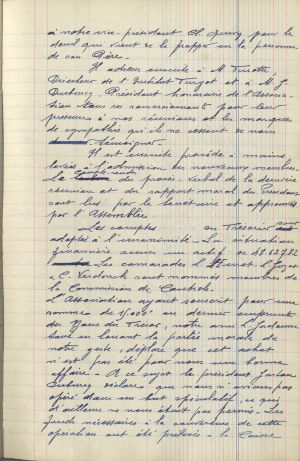 à notre vice-président Ch. Quiny pour le
deuil qui vient de le frapper en la personne
de son Père.
Il adresse ensuite à M
Directeur de l'Institut Turgot et à M J
Dubucq, Président honoraire de l'Associa-
tion tous ses remerciements pour leur
présence à nos réunions et les marques
de sympathie qu'ils ne cessent de nous
témoigner.
Il est ensuite procédé à mains
levées à l'admission des nouveaux membres.
Le compte-rendu procès-verbal de la dernière
réunion et du rapport moral du Président
sont lus par le secrétaire et approuvés
par l'Assemblée.
Les comptes du Trésorier sont
adoptés à l'unanimité - La situation
financière accuse un actif de
Les camarades
C. sont nommés membres de
la Commission de Contrôle.
L'Association ayant souscrit pour une
somme de au dernier emprunt
des Bons du Trésor, notre ami
tout en louant la portée morale de
notre geste, déplore que cet achat
n'est pas été pour nous une bonne
affaire. A ce sujet le président
Dubucq déclare que nous n'avions pas
opéré dans un but spéculatif, ce qui
d'ailleurs ne nous était pas permis. Les
fonds nécessaires à la couverture de cette
opération ont été prélevés à la Caisse